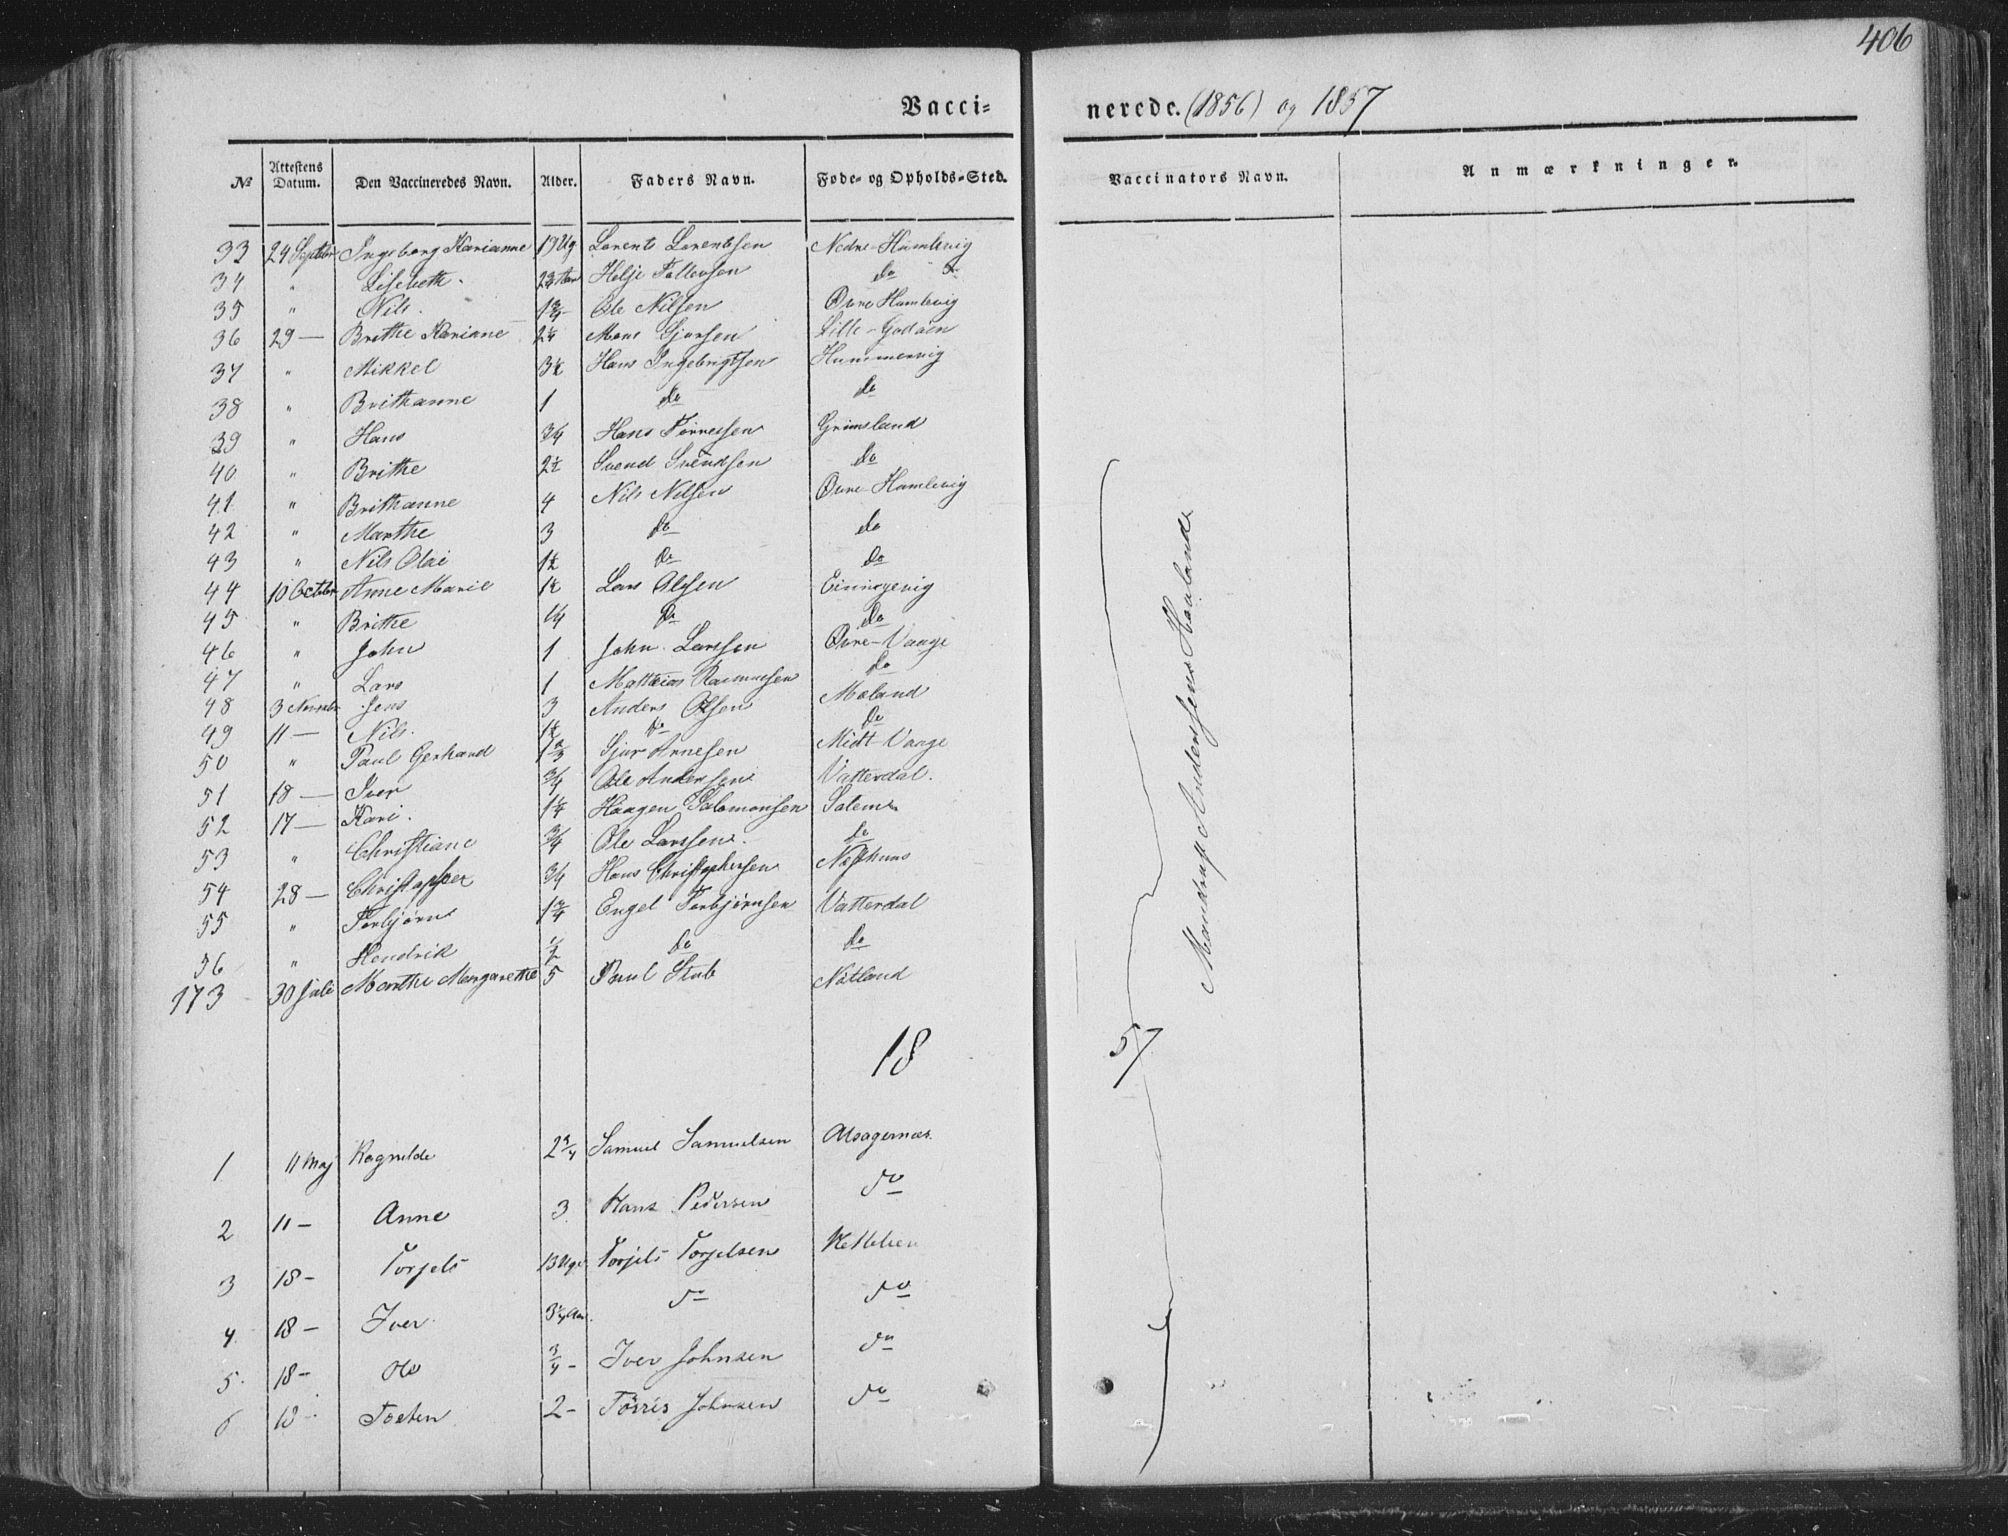 406
Vacci= nerede. (1856) og 1857
No Attestens Datum. Den Vaccineredes Navn. Alder. Faders Navn. Føde- og Opholds-Sted. Vaccinators Navn. Anmærkninger.
33 24 Septbr Ingeborg Karianne 17 Ug Lorents Lorentsen Nedre-Hamlevig
34 " Lisebeth Helje Tollevsen do
35 " Nils 1 3/4 Ole Nilsen Øvre Hamlevig
36 29 — Brithe Kariane 2 1/4 Mons Gjursen Lille-Godøen
37 " Mikkel 3 1/2 Hans Ingebrigtsen Hummervig
38 " Brithanne 1 do do
39 " Hans 3/4 Hans Grimsland
40 " Brithe 2 1/2 Svend Svendsen do
41 " Brithanne 4 Nils Nilsen Øvre-Hamlevig
42 " Marthe 3 do do
43 " Nils Olai 1 1/2 do do
44 10 Octbr Anne Marie 1 1/2 Lars Olsen
45 " Brithe 1/4 do do
46 " John 1 John Larssen Øvre-Vaage
47 " Lars 1 Mathias Rasmussen do
48 3 Novmbr Jens 3 Anders Olsen Moland
49 11 — Nils. 1 1/2 do do
50 " Paul Gerhard 1 2/3 Sjur Arnesen Midt-Vaage
51 18 — Iver 3/4 Ole Andersen Vatterdal.
52 17 — Kari. 1 1/4 Haagen Salomonsen Salem
53 " Christiane 3/4 Ole Larssen. do
54 28 — Christopher 3/4 Hans Christophersen Næsthuus
55 " Torbjørn 1 3/4 Engel Torbjørnsen Vatterdal
56 " Hendrik 1/2 do do
173 30 Juli Marthe Margarethe 5 Paul Stub Natland
18 57
1 11 Maj Ragnilde 2 3/4 Samuel Samuelsen
2 11 – Anne 3 Hans Pedersen do
3 18 – Torjels 13 Uger Torjels Torjelsen
4 18 – Iver 3 1/4 Aar. do do
5 18 – Ole 3/4 – Iver Johnsen do
6 18 – Tosten 2 – Tørris Johnsen do
Mandrup Andersen Haaland